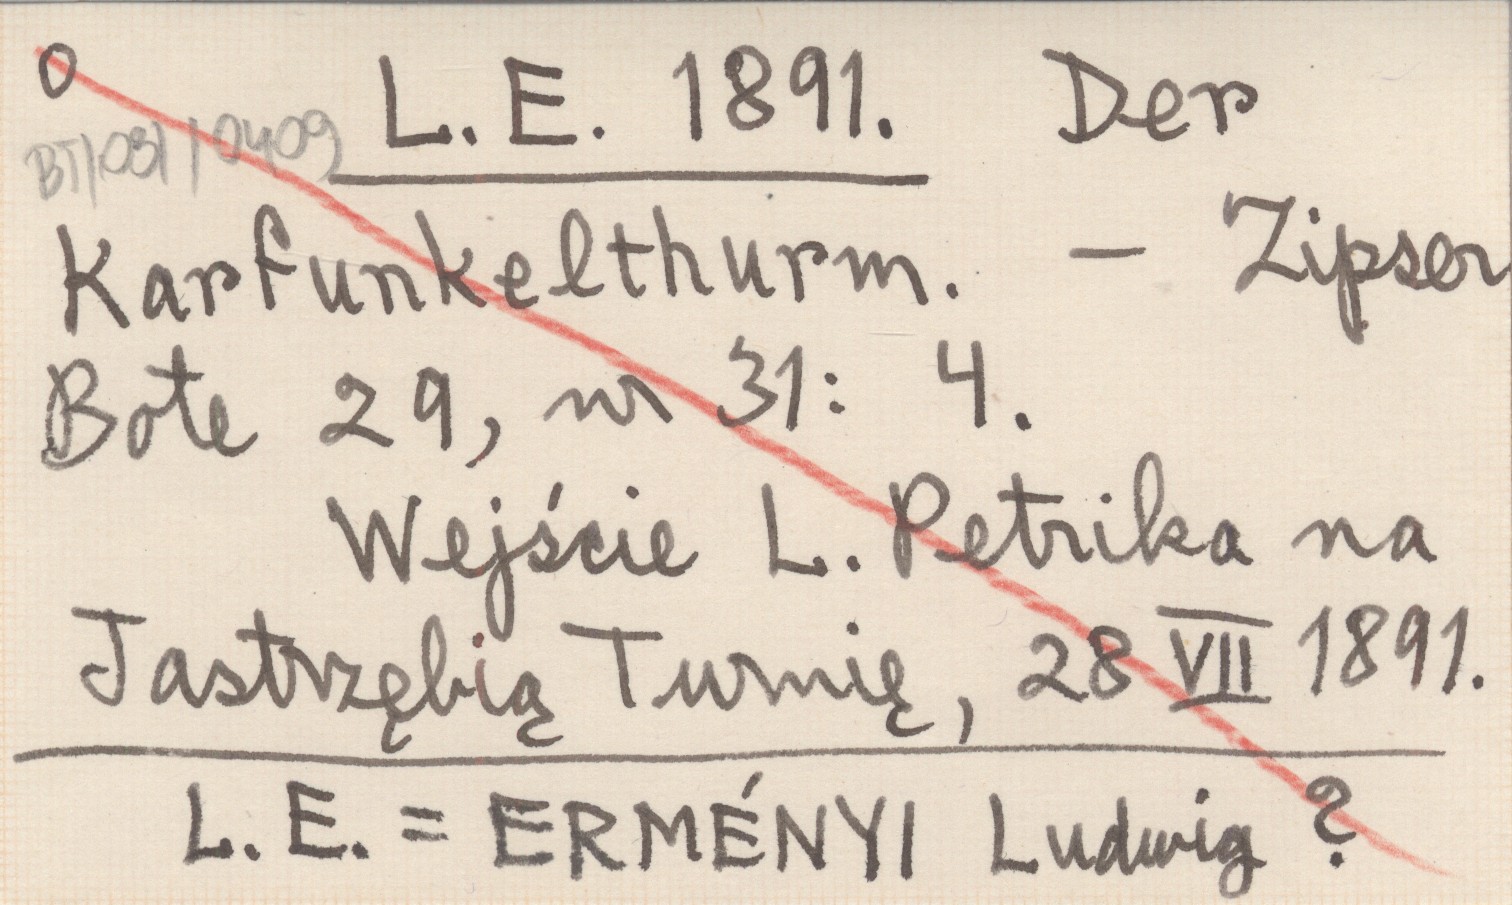 O L.E. 1891. Der
BT/031/0409
Karfunkelthurm. – Zipser
Bote 29, nr 31: 4.
Wejście L. Petrika na
Jastrzębią Turnię, 28 VII 1891.
L.E. = ERMÉNYI Ludwig ?